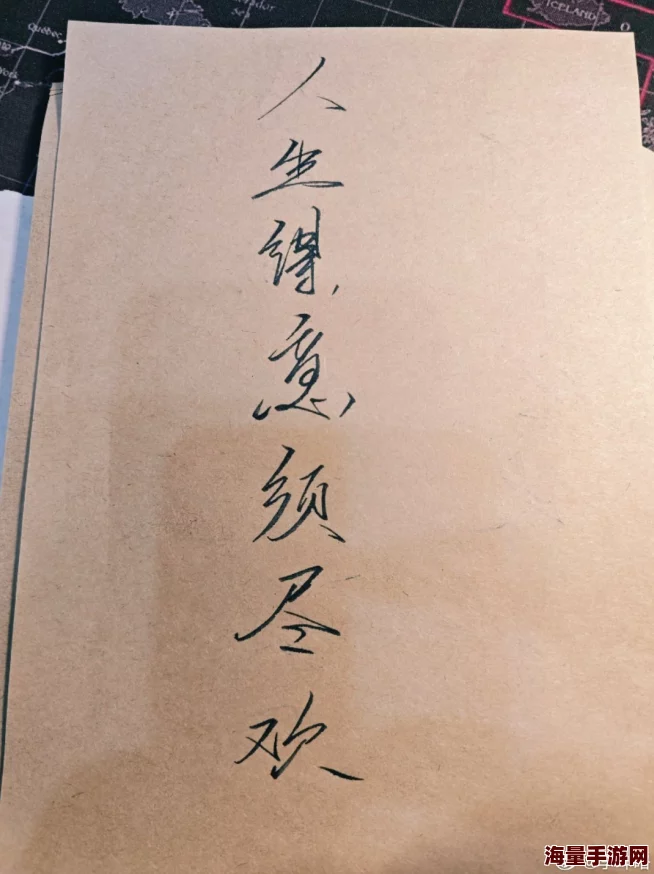 人生得意须尽欢
ICELAND
海量手游网